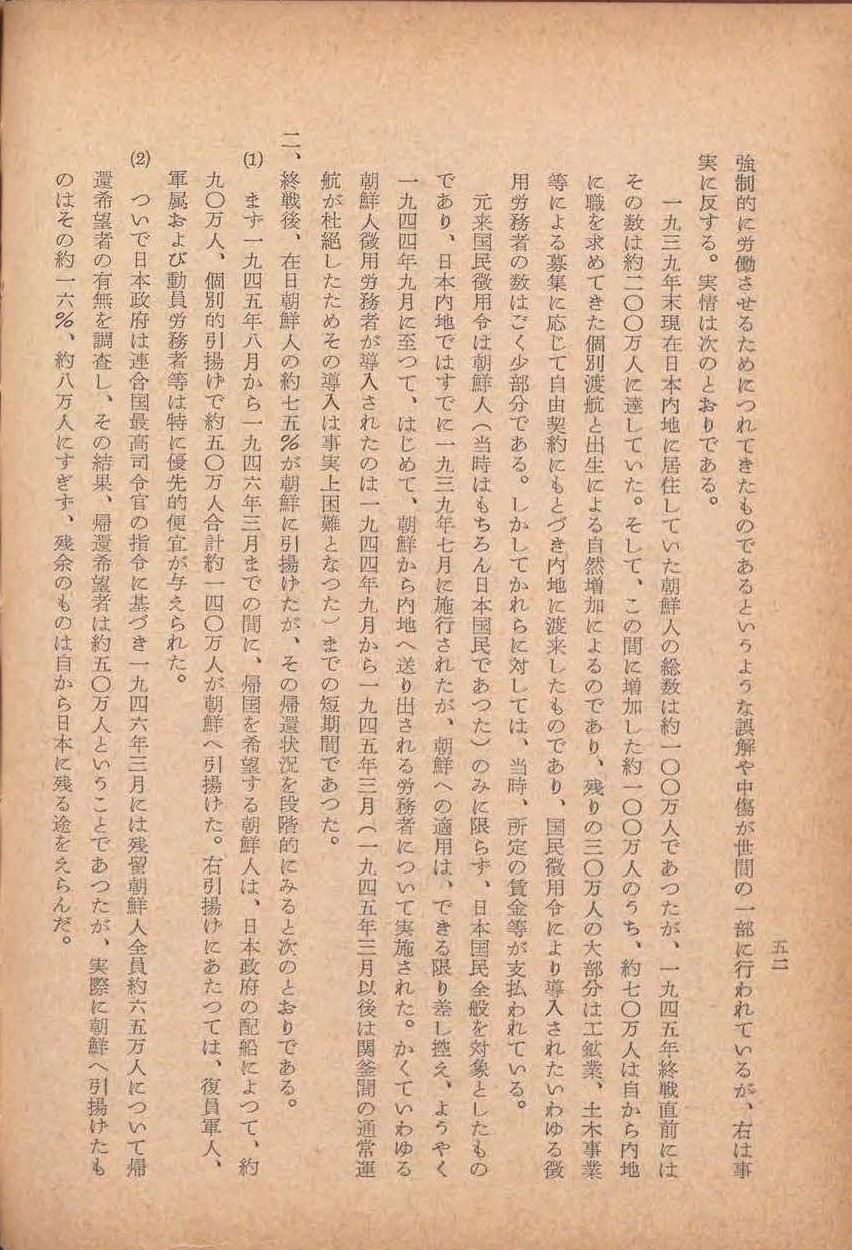 五二
強制的に労働させるためにつれてきたものであるというような誤解や中傷が世間の一部に行われているが、右は事
実に反する。実情は次のとおりである。
一九三九年末現在日本内地に居住していた朝鮮人の総数は約一〇〇万人であつたが、一九四五年終戦直前には
その数は約二〇〇万人に達していた。そして、この間に増加した約一〇〇万人のうち、約七〇万人は自から内地
に職を求めてきた個別渡航と出生による自然増加によるのであり、残りの三〇万人の大部分は工鉱業、土木事業
等による募集に応じて自由契約にもとづき内地に渡来したものであり、国民徴用令により導入されたいわゆる徴
用労務者の数はごく少部分である。しかしてかれらに対しては、当時、所定の賃金等が支払われている。
元来国民徴用令は朝鮮人（当時はもちろん日本国民であつた）のみに限らず、日本国民全般を対象としたもの
であり、日本内地ではすでに一九三九年七月に施行されたが、朝鮮への適用は、できる限り差し控え、ようやく
一九四四年九月に至つて、はじめて、朝鮮から内地へ送り出される労務者について実施された。かくていわゆる
朝鮮人徴用労務者が導入されたのは一九四四年九月から一九四五年三月（一九四五年三月以後は関釜間の通常運
航が杜絶したためその導入は事実上困難となつた）までの短期間であつた。
二、終戦後、在日朝鮮人の約七五％が朝鮮に引揚げたが、その帰還状況を段階的にみると次のとおりである。
(1) まず一九四五年八月から一九四六年三月までの間に、帰国を希望する朝鮮人は、日本政府の配船によつて、約
九〇万人、個別的引揚げで約五〇万人合計約一四〇万人が朝鮮へ引揚げた。右引揚げにあたつては、復員軍人、
軍属および動員労務者等は特に優先的便宜が与えられた。
(2) ついで日本政府は連合国最高司令官の指令に基づき一九四六年三月には残留朝鮮人全員約六五万人について帰
還希望者の有無を調査し、その結果、帰還希望者は約五〇万人ということであつたが、実際に朝鮮へ引揚げたも
のはその約一六％、約八万人にすぎず、残余のものは自から日本に残る途をえらんだ。